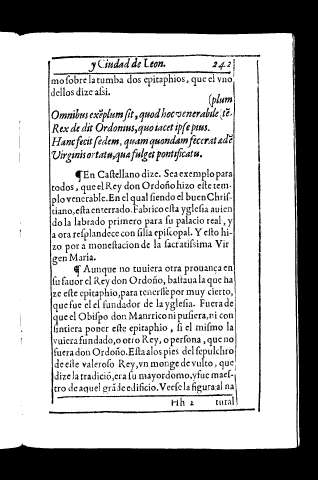 y Ciudad de Leon. 242
mo sobre la tumba dos epitaphios, que el vno
dellos dize assi.
(plum
Omnibus exẽplum sit, quod hoc venerabile tẽ-
Rex de dit Ordonius, quo iacet ipse pius.
Hanc fecit sedem, quam quondam fecerat adẽ
Virginis ortatu, qua fulget pontificatu.
¶ En Castellano dize. Sea exemplo para
todos, que el Rey don Ordoño hizo este tem-
plo venerable. En el qual siendo el buen Chris-
tiano, esta enterrado. Fabrico esta yglesia auien
do la labrado primero para su palacio real, y
a ora resplandece con silla episcopal. Y esto hi-
zo por amonestacion de la sacratissima Vir
gen Maria.
¶ Aunque no tuuiera otra prouança en
su fauor el Rey don Ordoño, bastaua la que ha
ze este epitaphio, para tenerse por muy cierto,
que fue el el fundador de la yglesia. Fuera de
que el Obispo don Manrrico ni pusiera, ni con
sintiera poner este epitaphio, si el mismo la
vuiera fundado, o otro Rey, o persona, que no
fuera don Ordoño. Esta a los pies del sepulchro
de este valeroso Rey, vn monge de vulto, que
dize la tradiciõ, era su mayordomo, y fue maes-
tro de aquel grãde edificio. Verse la figura al na
Hh 2 tural